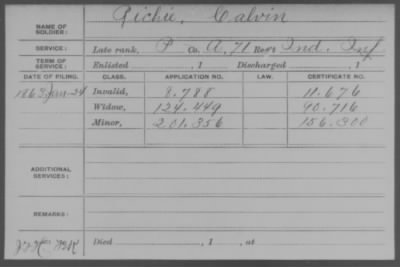 NAME OF SOLDIER: Richie, Calvin
SERVICE: Late rank, P Co. A, 71 Reg't Ind. Inf
TERM OF SERVICE: Enlisted , 1 Discharged , 1
DATE OF FILING. CLASS. APPLICATION NO. LAW. CERTIFICATE NO.
1863 Jan-24 Invalid, 8.788 11.676
Widow, 124.449 90.716
Minor, 201.356 156.300
ADDITIONAL SERVICES:
REMARKS:
Died , 1 , at